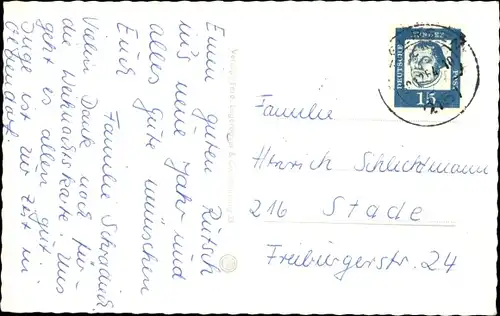 Einen guten Rutsch
ins neue Jahr und
alles gute wünschen
Euch
Familie Schröder.
Vielen Dank noch für
die Weihnachtskarte. Uns
geht es allen gut.
Inge ist zur Zeit in
DEUTSCHE
POST
15
Familie
Heinrich Schlichtmann
216 Stade
Freiburgerstr. 24